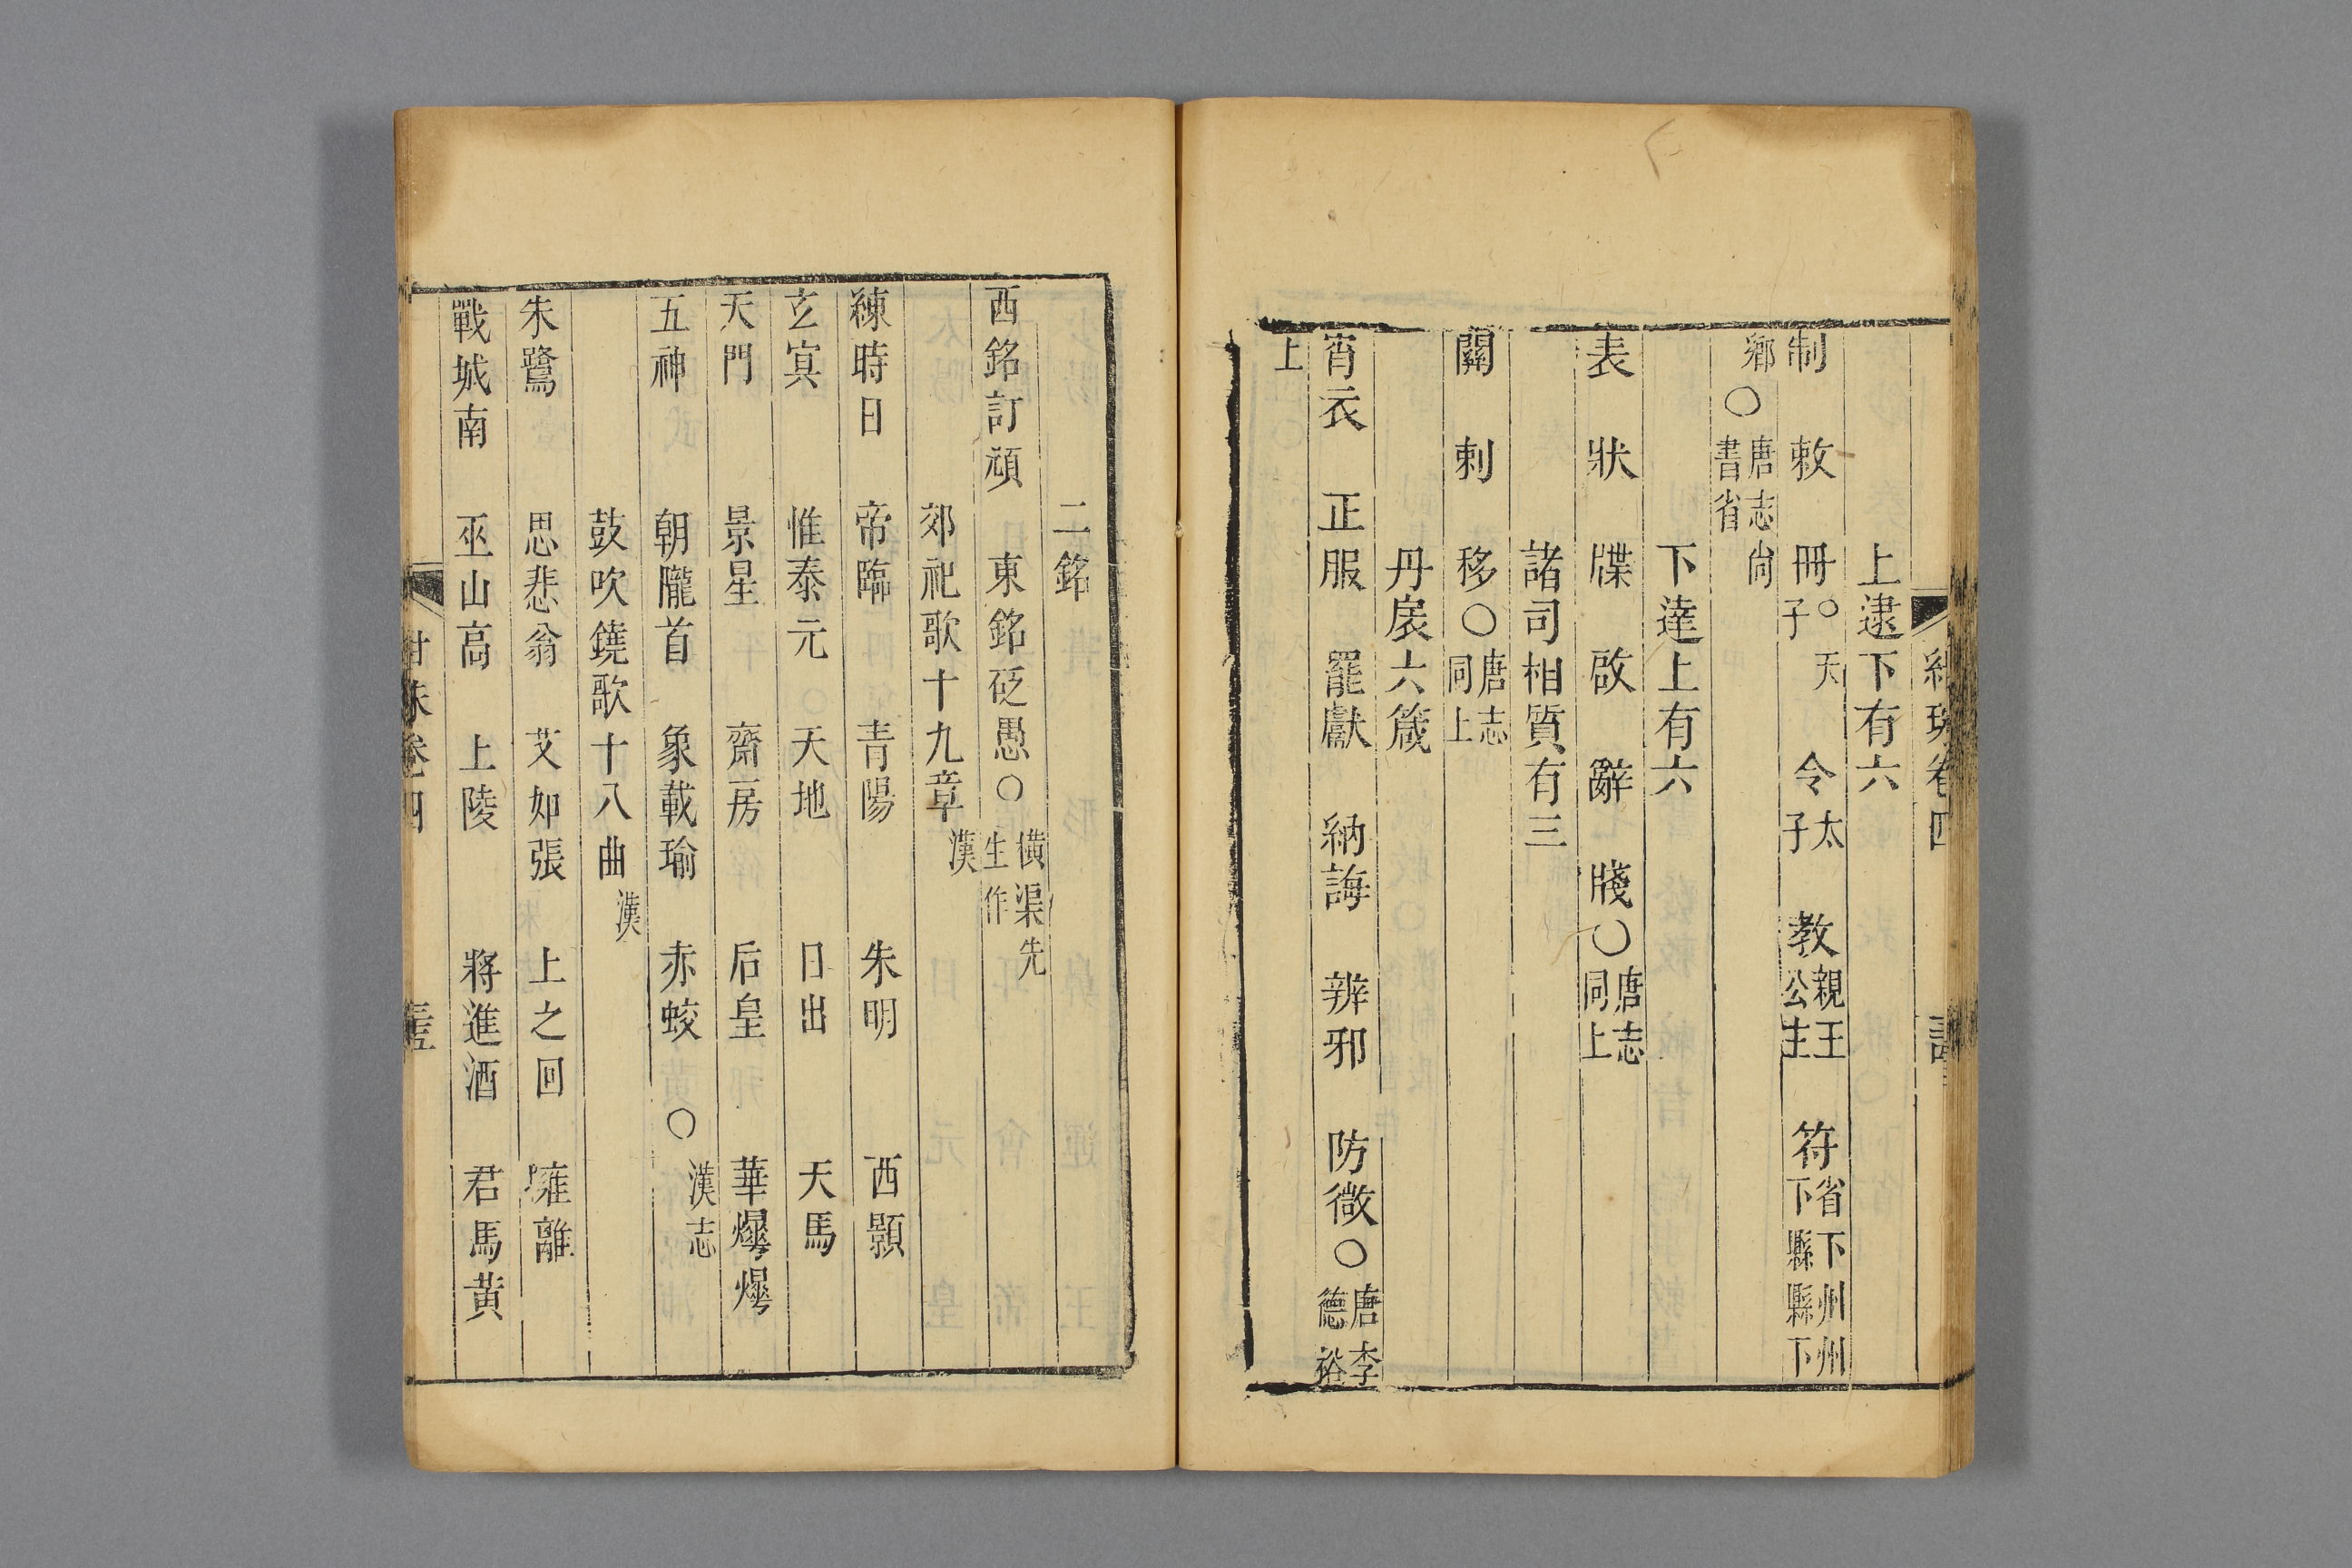 卷四
上逮下有六
制 敕 冊○天子 令太子 教親王公主 符省下州州下縣縣下
鄉○唐志尚書省
下達上有六
表 狀 牒 啟 辭 牋○唐志同上
諸司相質有三
關 刺 移○唐志同上
丹扆六箴
宵衣 正服 罷獻 納誨 辨邪 防微○唐李德裕
上
二銘
西銘訂頑 東銘砭愚○橫渠先生作
郊祀歌十九章漢
練時日 帝臨 青陽 朱明 西顥
玄冥 惟泰元 天地 日出 天馬
天門 景星 齋房 后皇 華爗爗
五神 朝隴首 象載瑜 赤蛟 ○漢志
鼓吹鐃歌十八曲漢
朱鷺 思悲翁 艾如張 上之回 擁離
戰城南 巫山高 上陵 將進酒 君馬黃
珠卷四